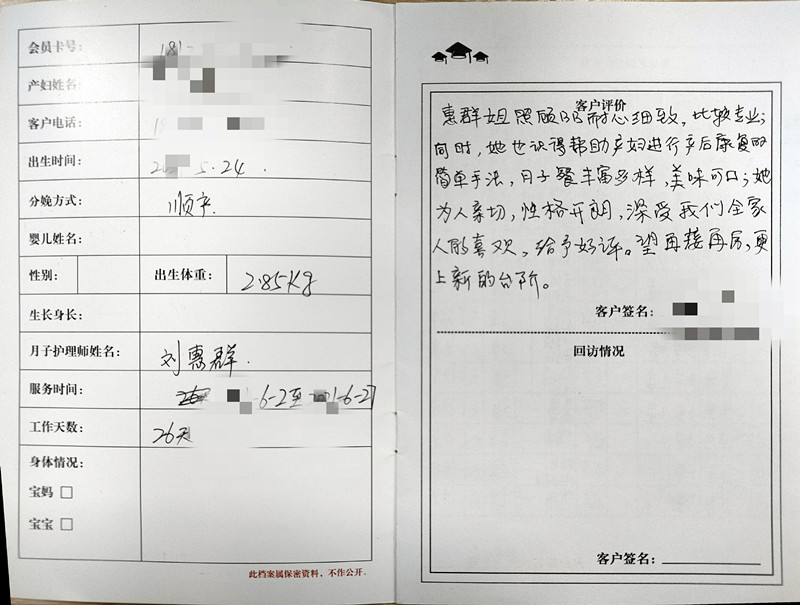 会员卡号：181
产妇姓名：
客户电话：1
出生时间：2 5.24.
分娩方式：顺产.
婴儿姓名：
性别： 出生体重：2.85Kg
生长身长：
月子护理师姓名：刘惠群.
服务时间：6-2至 1-6-27
工作天数：26天
身体情况：
宝妈 □
宝宝 □
此档案属保密资料，不作公开.
客户评价
惠群姐照顾BB耐心细致，比较专业；
同时，她也识得帮助产妇进行产后康复的
简单手法，月子餐丰富多样，美味可口；她
为人亲切，性格开朗，深受我们全家
人的喜欢，给予好评。望再接再厉，更
上新的台阶。
客户签名：
回访情况
客户签名：